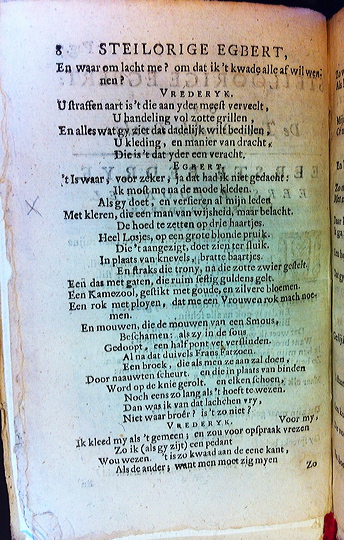 8 STEILORIGE EGBERT,
En waar om lacht me? om dat ik 't kwade alle af wil wen-
nen?
VREDERYK.
U straffen aart is 't die aan yder meest verveelt,
U handeling vol zotte grillen,
En alles wat gy ziet dat dadelijk wilt bedillen,
U kleding, en manier van dracht,
Die is 't dat yder een veracht.
EGBERT.
't Is waar, voor zeker, ja dat had ik niet gedacht:
Ik most me na de mode kleden.
Als gy doet, en versieren al mijn leden
Met kleren, die een man van wijsheid, maar belacht.
De hoed te zetten op drie haartjes.
Heel Losjes, op een grote blonde pruik.
Die 't aangezigt, doet zien ter sluik.
In plaats van knevels, bratte baartjes.
En straks die trony, na die zotte zwier gestelt.
Een das met gaten, die ruim seftig guldens gelt.
Een Kamezool, gestikt met goude, en zilvere bloemen.
Een rok met ployen, dat me een Vrouwen rok mach noe-
men.
En mouwen, die de mouwen van een Smous,
Beschamen: als zy in de sous
Gedoopt, een half pont vet verslinden.
Al na dat duivels Frans Patzoen.
Een broek, die als men ze aan zal doen,
Door naauwten scheurt. en die in plaats van binden
Word op de knie gerolt. en elken schoen,
Noch eens zo lang als 't hoeft te wezen.
Dan was ik van dat lachchen vry,
Niet waar broêr? is 't zo niet?
VREDERYK. Voor my,
Ik kleed my als 't gemeen; en zou voor opspraak vrezen
Zo ik (als gy zijt) een pedant
Wou wezen. 't is zo kwaad aan de eene kant,
Als de ander; want men moet zig myen
Zo